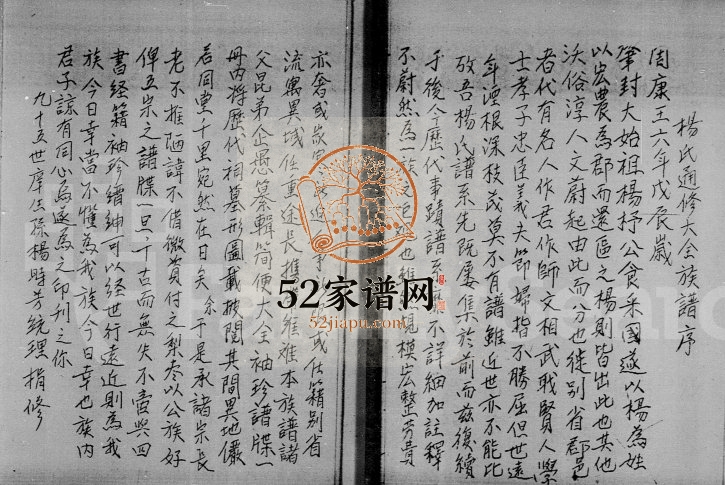 楊氏通修大全族譜序
周康王六年戊辰歲
肇封大始祖楊杼公食采國遂以楊為姓
以宏農為郡而還區之楊則皆出此也其他
沃俗淳人文蔚起由此而分也徙別省郡邑
者代有名人作君作師文相武戢賢人學
士孝子忠臣義夫節婦指不勝屈但世遠
年湮根深枝茂莫不有譜雖近世亦不能比
攷吾楊氏譜系先既屢集於前而茲復續
于後今歷代事蹟譜系 不詳細加註釋
不蔚然為一族 也 規模宏整芳貴
亦奢或家 事 或仕籍別省
流寓異域任重途長推 維本族譜諸
父昆弟企懇纂輯簡便大全袖珍譜牒一
冊內将歷代祠墓形圖載披閱其間異地儼
若同堂千里宛然在目矣余于是承諸宗長
老不推陋諱不借微貲付之梨枣以公族好
俾五宗之譜牒一旦千古而無失不啻與四
書經籍袖珍縉紳可以經世行遠近則為我
族今日幸當不惟為我族今日幸也族內
君子諒有同心為遂為之印刊之你
九十五世庠 孫楊時芳統理指修
52家谱网
52jiapu.com